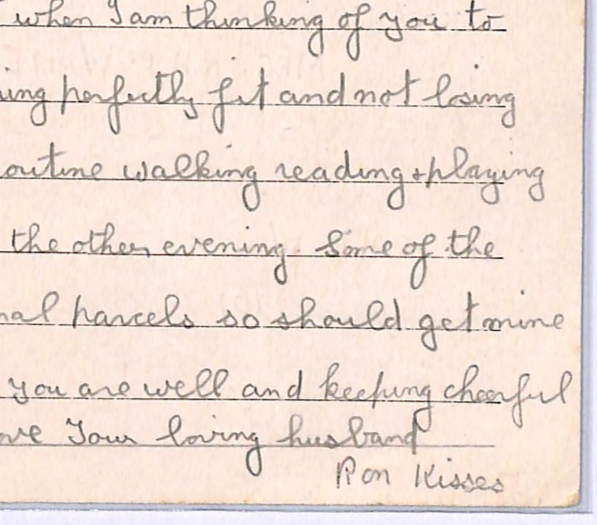 when I am thinking of you to
ing perfectly fit and not losing
outine walking reading + playing
the other evening. Some of the
nal parcels so should get mine
you are well and keeping cheerful
ove Your loving husband
Ron Kisses